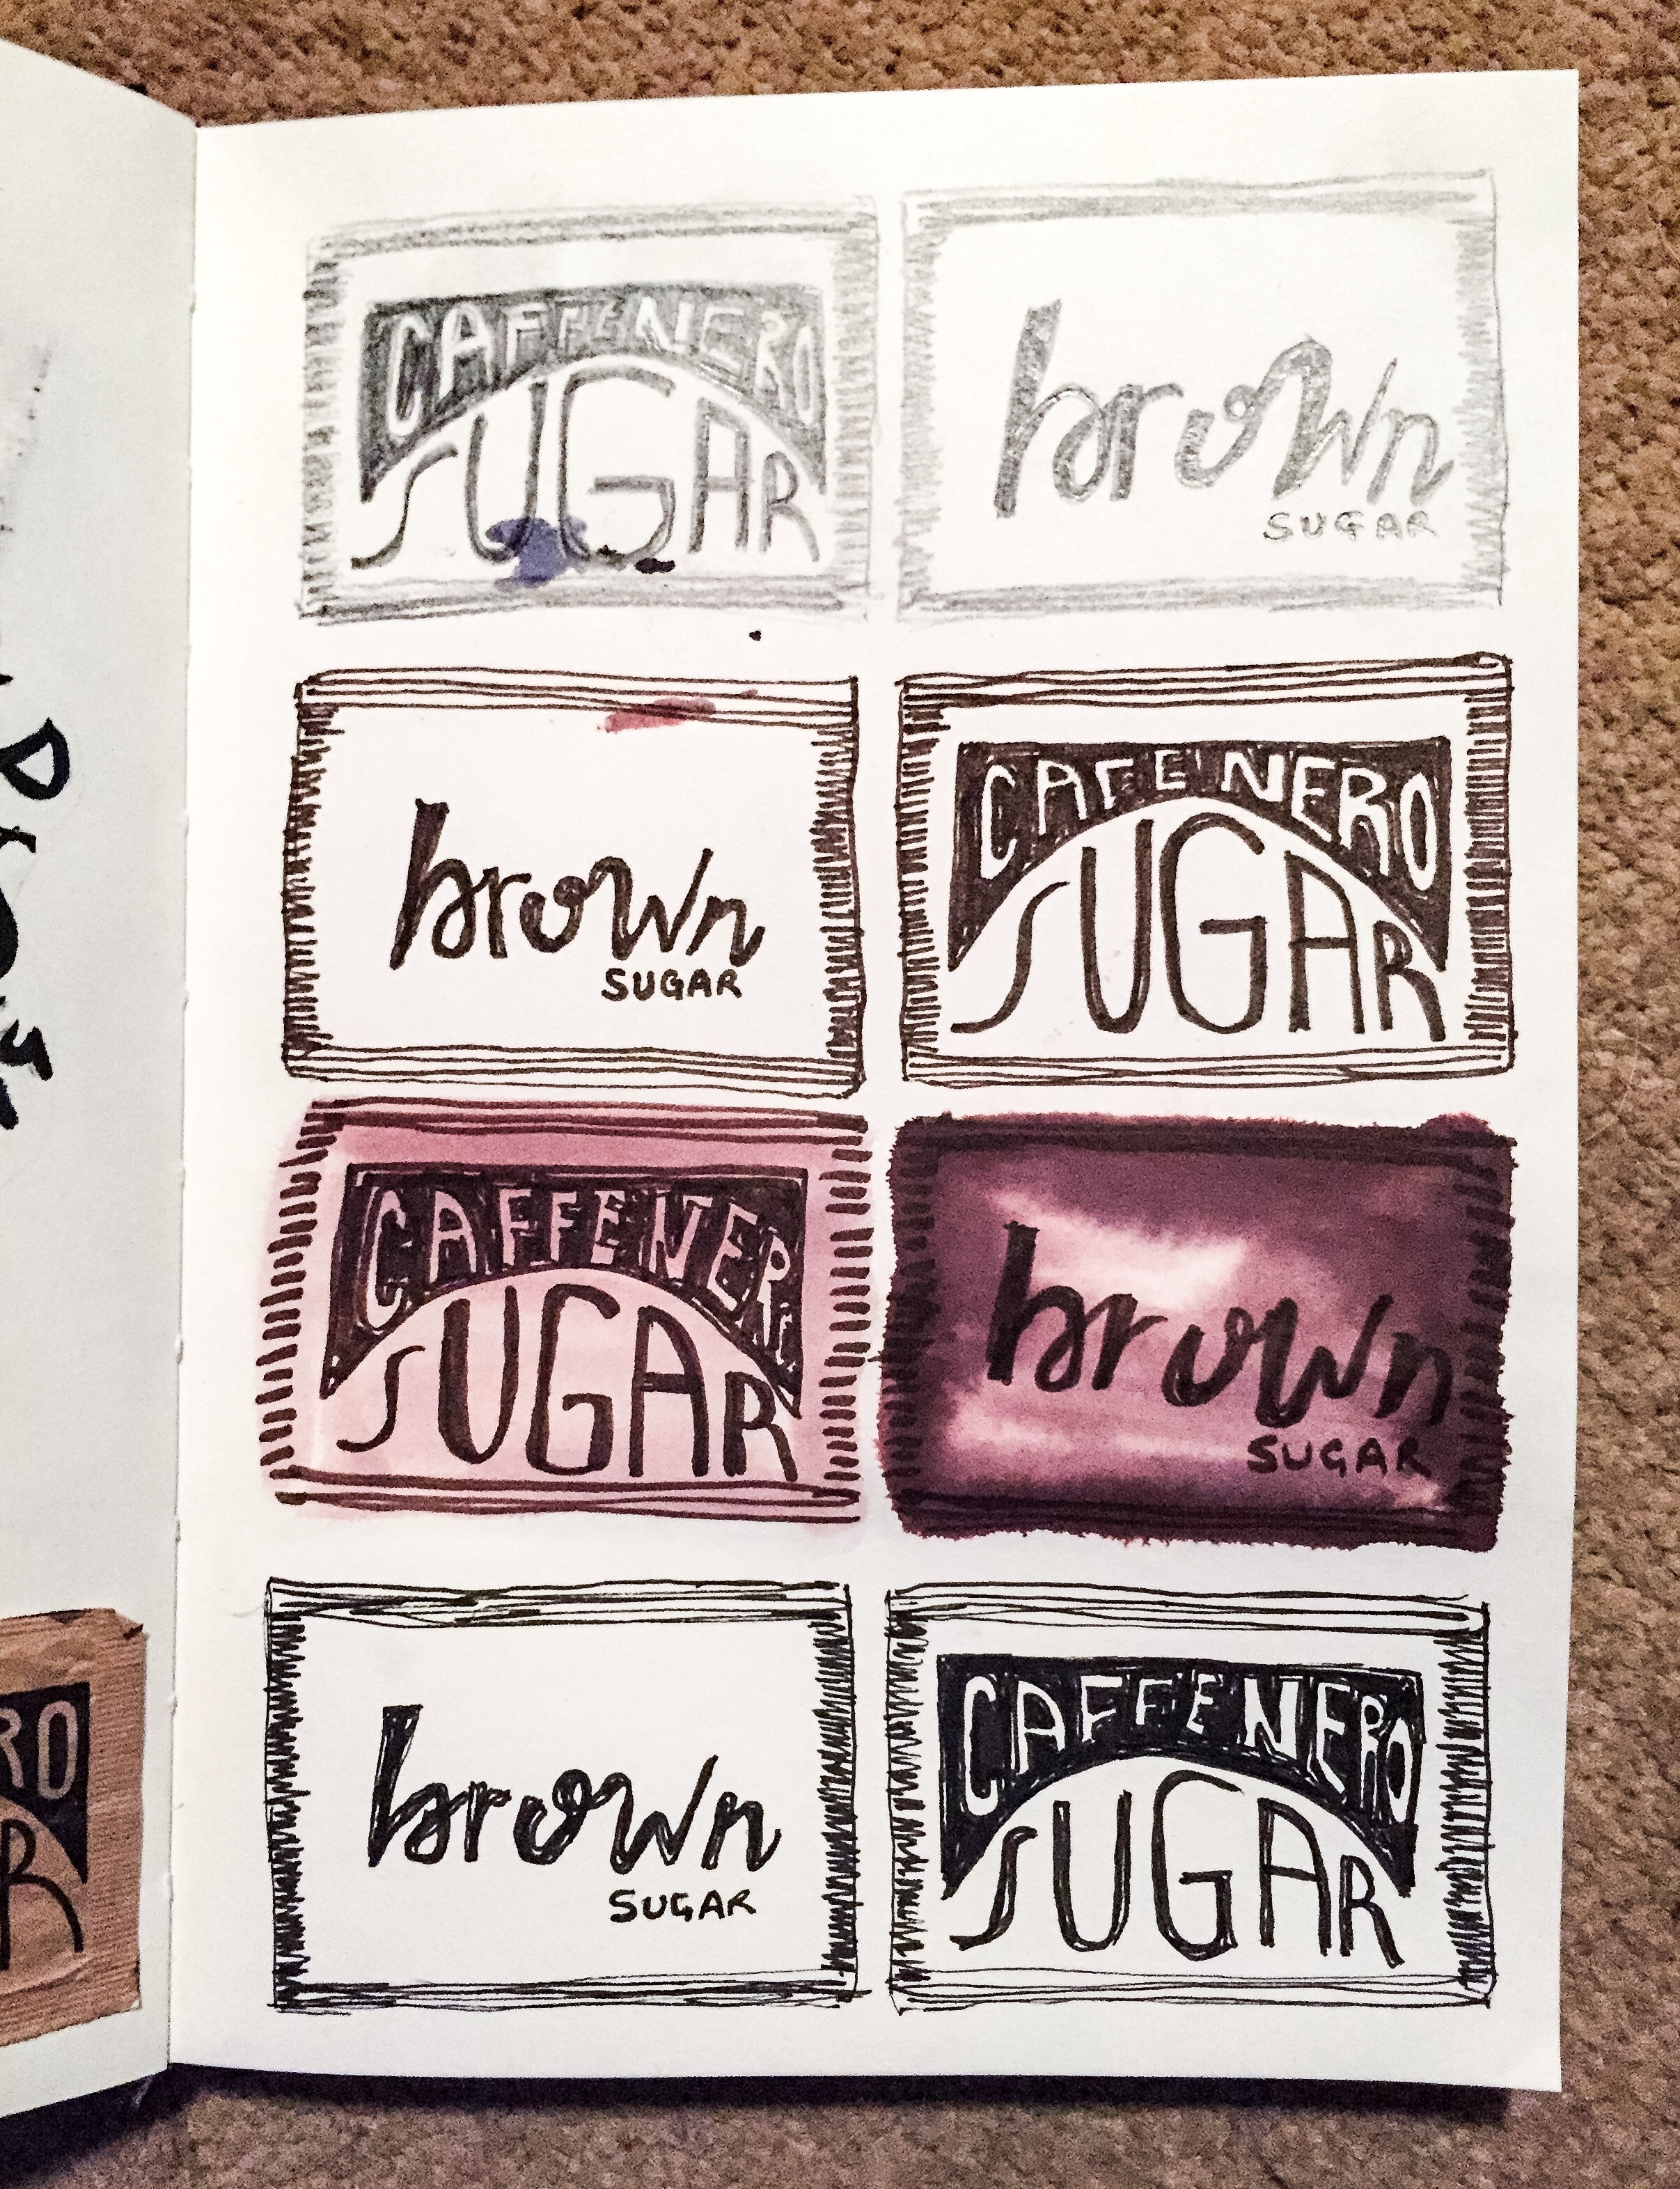 CAFFENERO
SUGAR
brown
SUGAR
brown
SUGAR
CAFE NERO
SUGAR
CAFFENER
SUGAR
brown
SUGAR
brown
SUGAR
CAFFENERO
SUGAR
RO
R